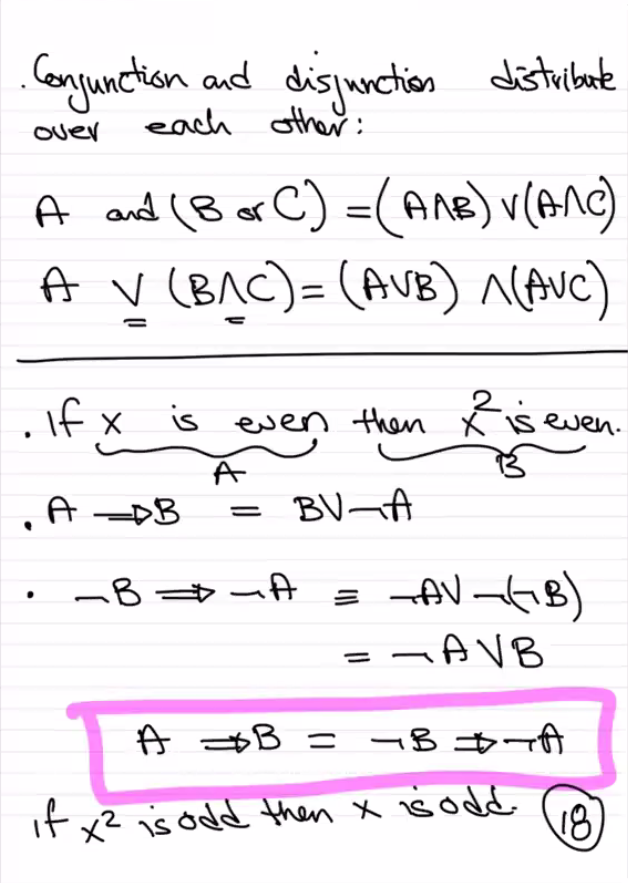 . Conjunction and disjunction distribute
over each other:
A and (B or C) = (A∧B) ∨ (A∧C)
A ∨ (B∧C) = (A∨B) ∧ (A∨C)
. If x is even then x² is even.
A B
. A ⇒ B = B∨¬A
. ¬B ⇒ ¬A ≡ ¬A∨¬(¬B)
= ¬A∨B
A ⇒ B = ¬B ⇒ ¬A
if x² is odd then x is odd. 18